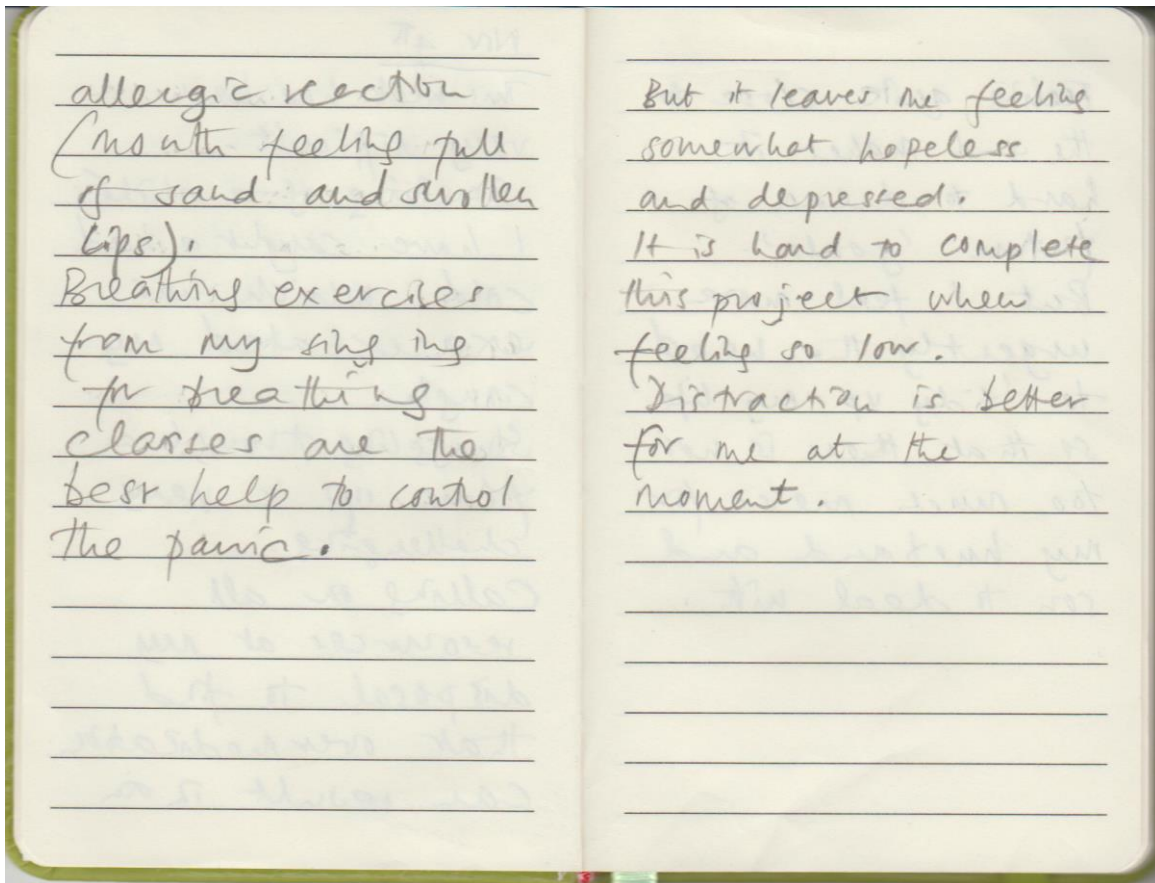 allergic reaction
(mouth feeling full
of sand and swollen
lips).
Breathing exercises
from my singing
for breathing
classes are the
best help to control
the panic.
But it leaves me feeling
somewhat hopeless
and depressed.
It is hard to complete
this project when
feeling so low.
Distraction is better
for me at the
moment.